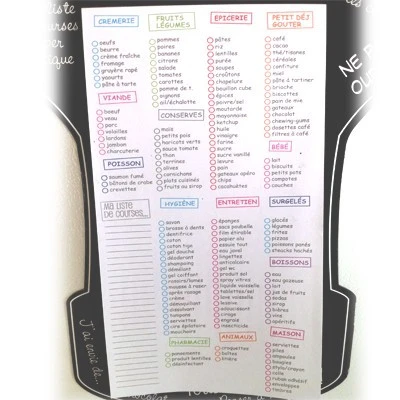 CREMERIE
oeufs
beurre
crème fraîche
fromage
gruyère rapé
yaourts
pâte à tarte
VIANDE
boeuf
veau
porc
volailles
lardons
jambon
charcuterie
POISSON
saumon fumé
bâtons de crabe
crevettes
Ma liste
de courses...
FRUITS
LÉGUMES
pommes
poires
bananes
citrons
salade
tomates
carottes
pomme de t.
oignons
ail/échalotte
CONSERVES
maïs
petits pois
haricots verts
sauce tomate
thon
terrines
olives
cornichons
plats cuisinés
fruits au sirop
HYGIÈNE
savon
brosse à dents
dentifrice
coton
coton tige
gel douche
déodorant
shampoing
démêlant
gel coiffant
rasoirs/lames
mousse à raser
après rasage
crème
démaquillant
dissolvant
tampons
serviettes
cire épilatoire
mouchoirs
PHARMACIE
pansements
produit lentilles
désinfectant
EPICERIE
pâtes
riz
lentilles
purée
soupes
croûtons
chapelure
bouillon cube
épices
poivre/sel
moutarde
mayonnaise
ketchup
huile
vinaigre
farine
sucre
sucre vanillé
levure
pain
gateaux
chips
cacahuètes
ENTRETIEN
éponges
sacs poubelle
film étirable
papier alu
essuie tout
eau javel
détergent
lingettes
anticalcaire
gel wc
produit sol
spray vitres
liquide vaisselle
tablettes/sel
lave vaisselle
lessive
adoucissant
cirage
engrais
insecticide
ANIMAUX
croquettes
boîtes
litière
PETIT DÉJ
GOUTER
café
cacao
thé/tisanes
céréales
confiture
miel
pâte à tartiner
brioche
biscottes
pain de mie
gateaux
chocolat
chewing-gums
dosettes café
filtres à café
BÉBÉ
lait
biscuits
petits pots
compotes
couches
SURGELÉS
glaces
légumes
frites
pizzas
poissons panés
steacks hachés
BOISSONS
eau
eau gazeuse
lait
jus de fruits
sodas
sirop
bières
vins
apéritifs
MAISON
serviettes
piles
ampoules
bougies
stylo/crayon
colle
ruban adhésif
enveloppes
timbres
J'ai envie de...